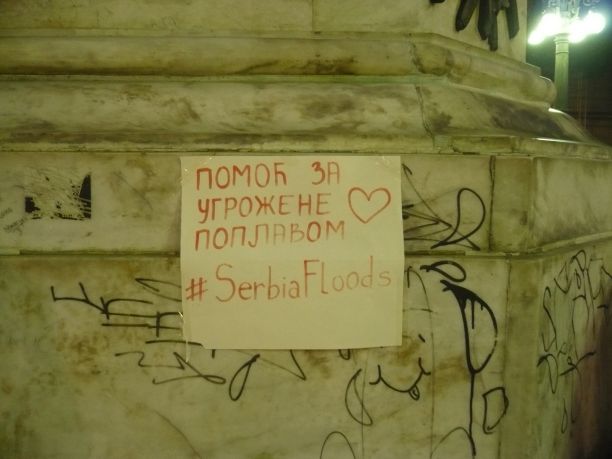 ПОМОЋ ЗА
УГРОЖЕНЕ
ПОПЛАВОМ
#SerbiaFloods